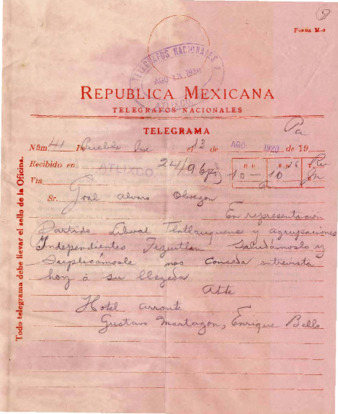 FORMA M-9
TELEGRAFOS NACIONALES
AGO 13 1920
REPUBLICA MEXICANA
TELEGRAFOS NACIONALES
TELEGRAMA
Núm. 41 Puebla Pue el 13 de AGO 1920 de 19
Recibido en ATLIXCO
Vía
10 - 10
Sr. Gral Alvaro Obregon
En representación
Partido Liberal Tlatlauquense y agrupaciones
Independientes Teziutlan Saludámoslo y
Suplicámosle nos conceda entrevista
hoy á su llegada
Atte
Hotel Arronte
Gustavo Enrique Bello
Todo telegrama debe llevar el sello de la Oficina.